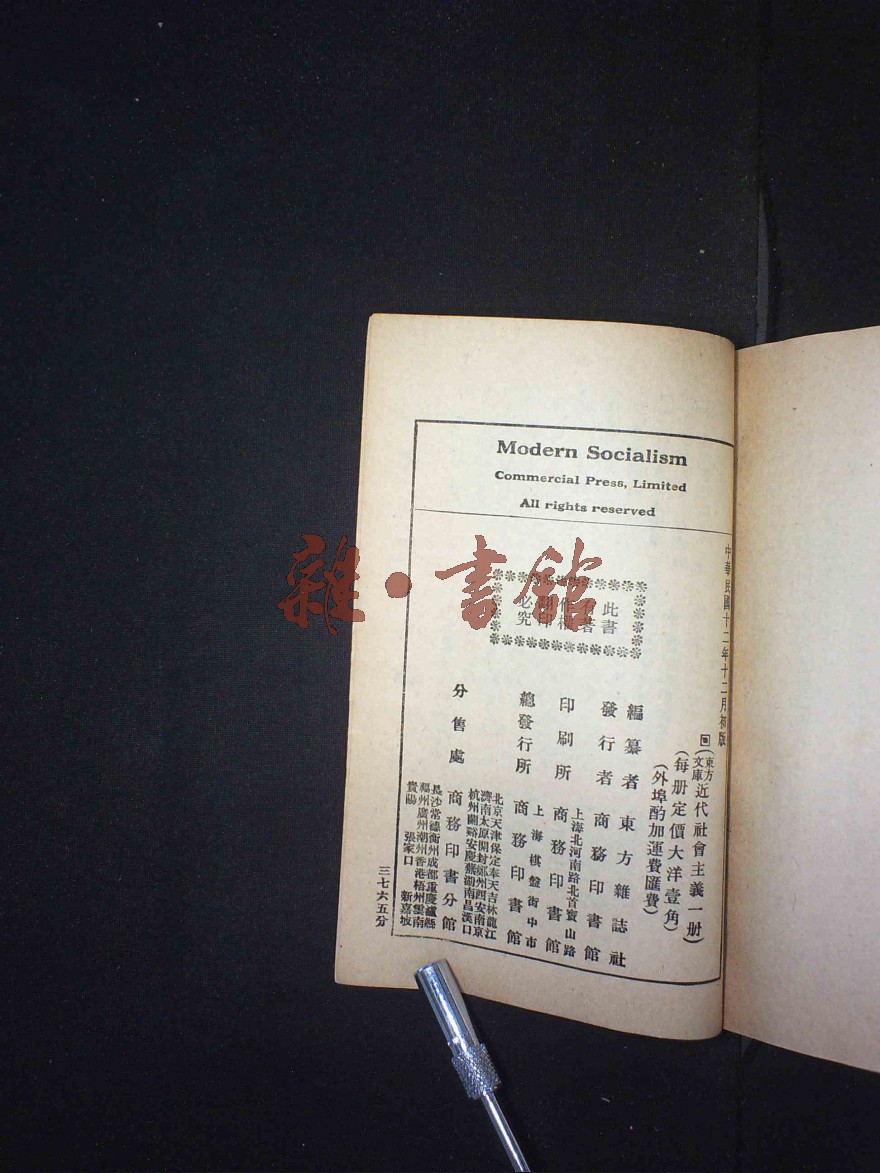 Modern Socialism
Commercial Press, Limited
All rights reserved
中華民國十二年十二月初版
(東方文庫)近代社會主義一册
(每册定價大洋壹角)
(外埠酌加運費匯費)
此書
有著
作權
翻印
必究
編纂者 東方雜誌社
發行者 商務印書館
印刷所 商務印書館
上海北河南路北首寶山路
總發行所 商務印書館
上海棋盤街中市
分售處 商務印書分館
北京天津保定奉天吉林龍江
濟南太原開封鄭州西安南京
杭州蘭谿安慶蕪湖南昌漢口
長沙常德衡州成都重慶瀘縣
福州廣州潮州香港梧州雲南
貴陽 張家口 新嘉坡
三七六五分
雜·書館